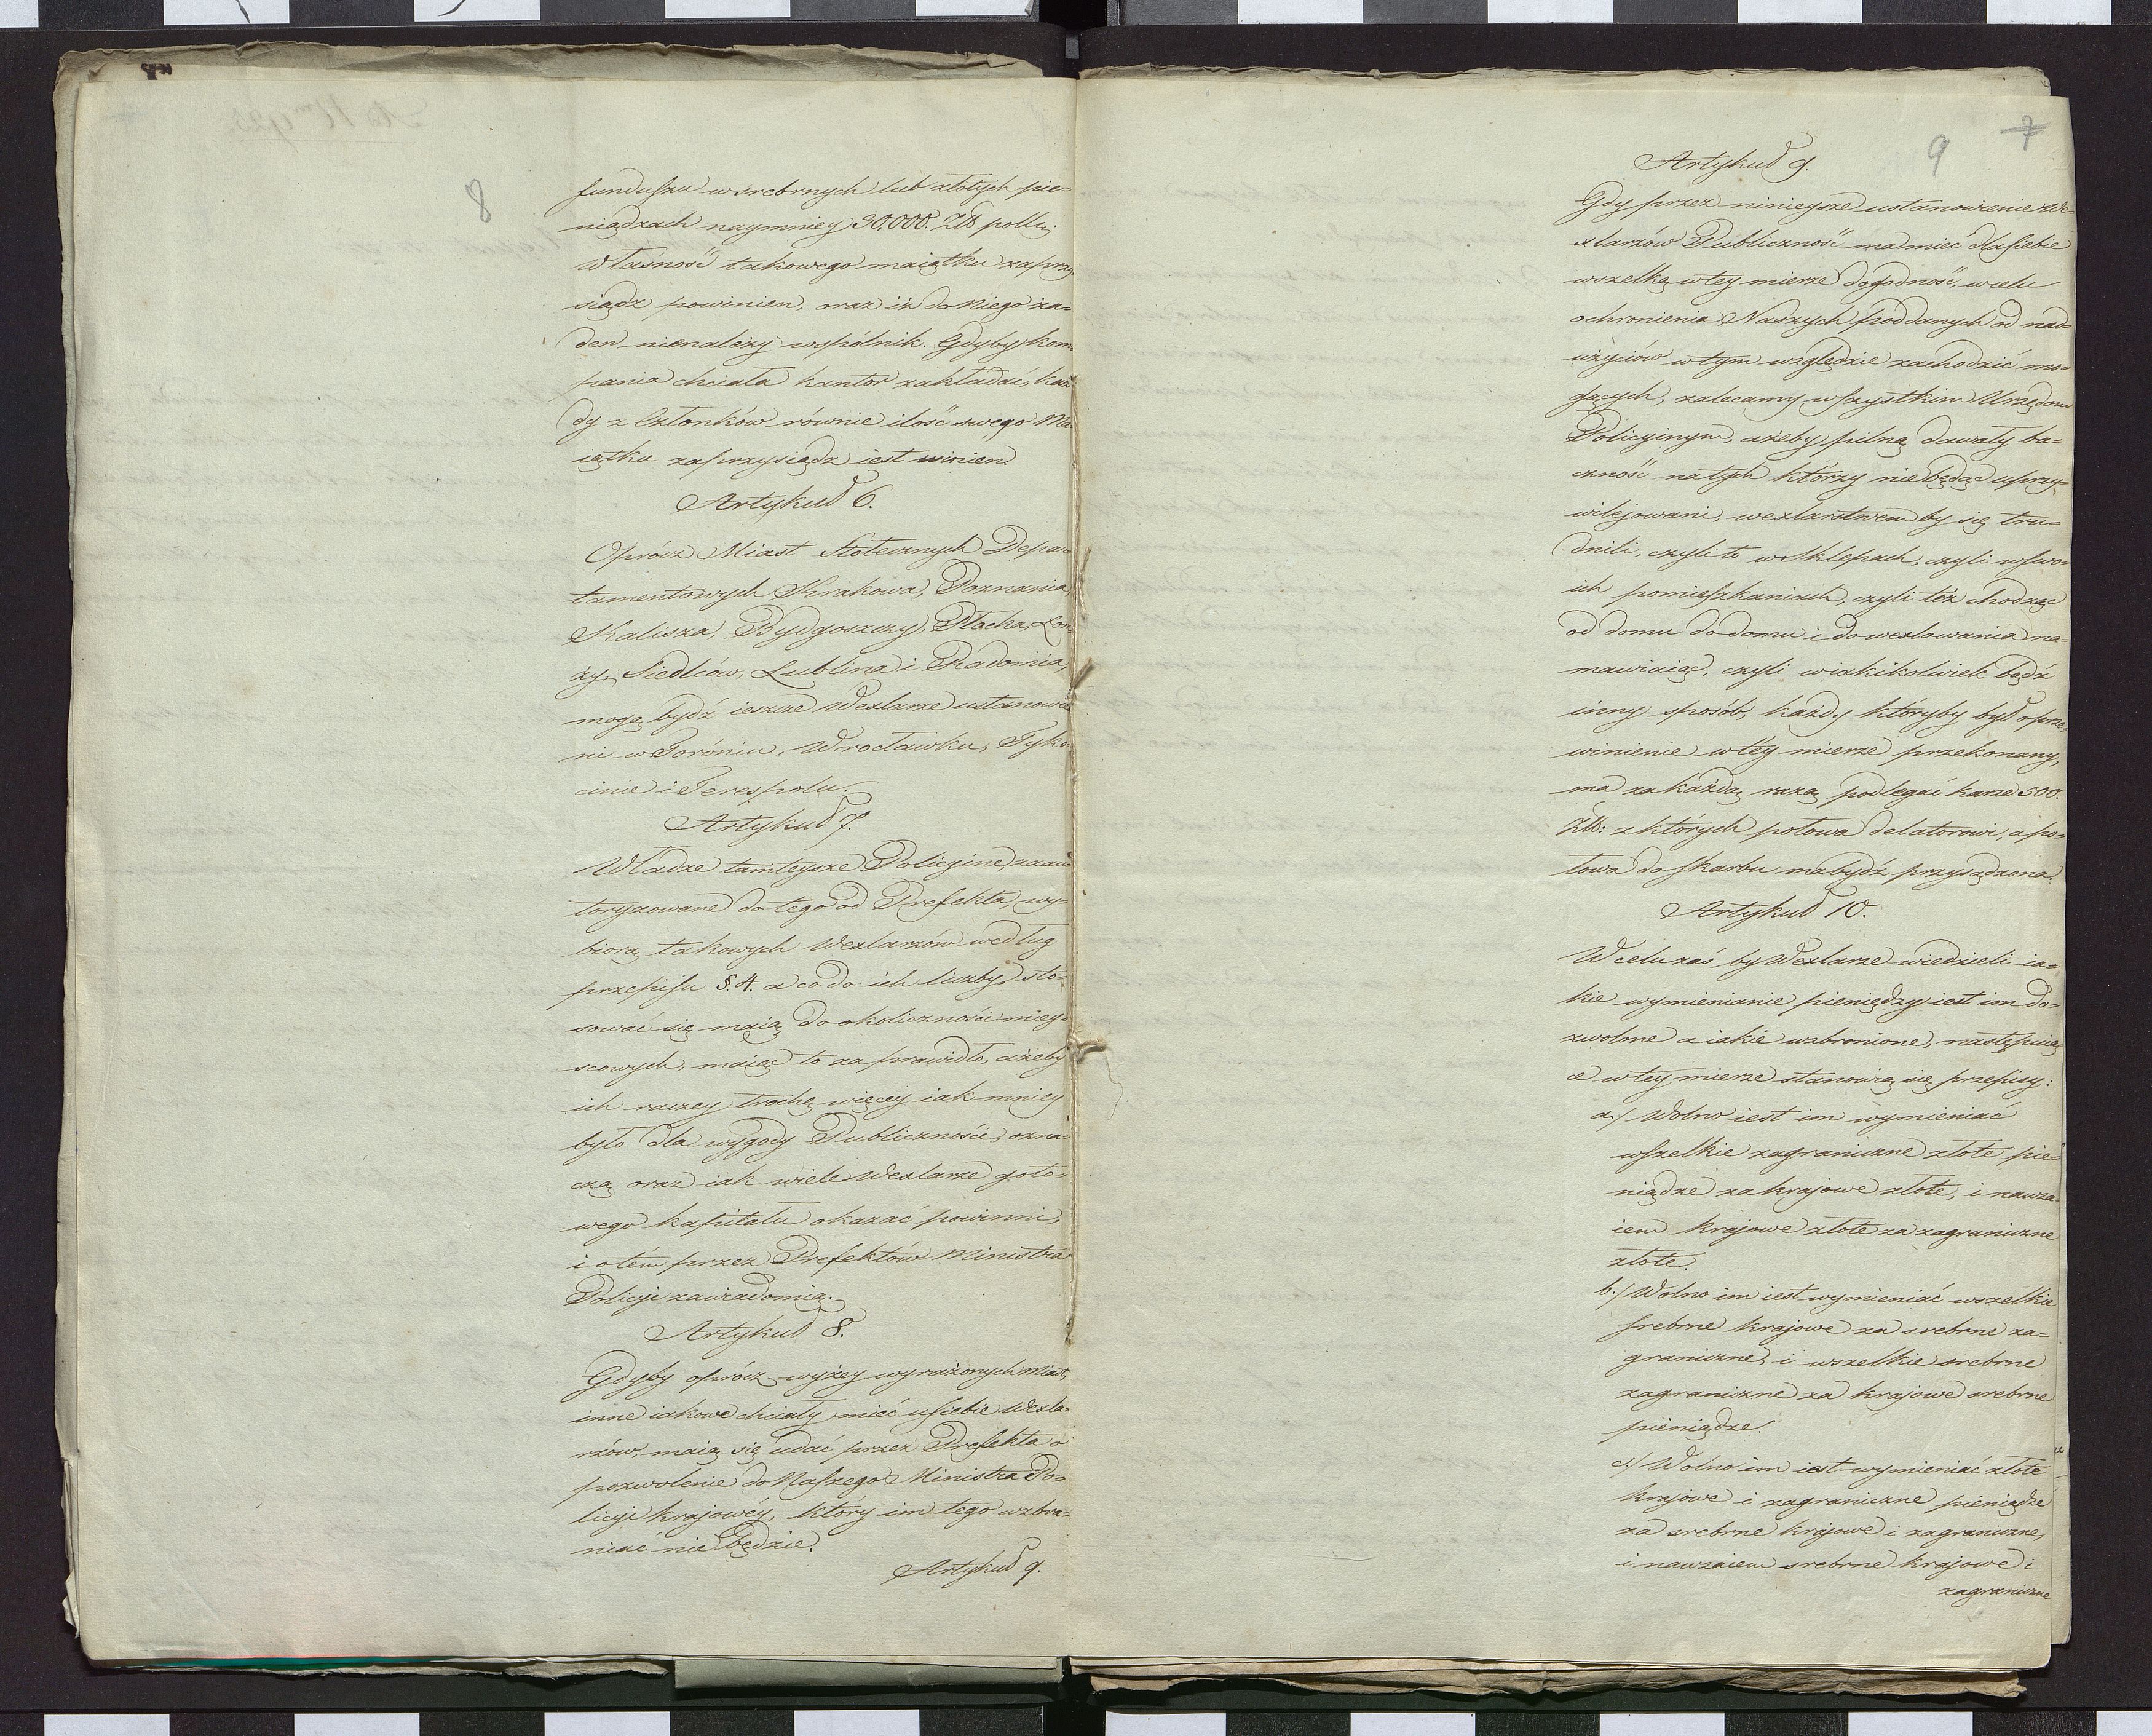 8
funduszu w srebrnych lub złotych pie=
niądzach naymniey 30,000. Złł polł:
Własność takowego maiątku zaprzy
siądz powinien, oraz iż do niego ża=
den nienależy wspólnik. Gdyby kom
pania chciała kantor zakładać, każ
dy z Członków równie ilość swego Ma
iątku zaprzysiądz iest winien.
Artykuł 6.
Oprócz Miast Stołecznych Depar
tamentowych Krakowa, Poznania,
Kalisza, Bydgoszczy, Płocka, Łom
ży, Siedlców, Lublina i Radomia,
mogą bydź ieszcze Wexlarze ustanowie
ni w Toróniu, Wrocławku, Tyko
cinie i Terespolu.
Artykuł 7.
Władze tamteysze Policyine, zaau
toryzowane do tego od Prefekta, wy=
biorą takowych Wexlarzów według
przepisu §. 4. a co do ich liczby sto=
sować się maią do okoliczności miey=
scowych, maiąc to za prawidło, ażeby
ich raczey trochę więcey iak mniey
było dla wygody Publiczności, ozna=
czą oraz iak wiele Wexlarze goto=
wego kapitału okazać powinni,
i o tém przez Prefektów Ministra
Policyi zawiadomią.
Artykuł 8.
Gdyby oprócz wyżey wyrażonych Miast,
inne iakowe chciały mieć u siebie Wexla=
rzów, maią się udać przez Prefekta o
pozwolenie do Naszego Ministra Po=
licyi krajowéy, który im tego wzbra=
niać nie będzie.
Artykuł 9.
9 7
Artykuł 9.
Gdy przez ninieysze ustanowienie We=
xlarzów Publiczność ma mieć dla siebie
wszelką w tey mierze dogodność, w celu
ochronienia Naszych poddanych od nad=
użyciów w tym względzie zachodzić mo=
gących, zalecamy wszystkim Urzędom
Policyinym, ażeby pilną dawały ba=
czność na tych którzy nie będąc uprzy=
wilejowani, wexlarstwem by się tru=
dnili, czyli to w Sklepach, czyli w swo=
ich pomieszkaniach, czyli téż chodząc
od domu do domu i do wexlowania na=
mawiaiąc, czyli w iakikolwiek bądź
inny sposób, każdy któryby był o prze=
winienie w téy mierze przekonany,
ma za każdą razą podlegać karze 500.
Złł: z których połowa delatorowi, a po=
łowa do skarbu ma bydź przysądzona.
Artykuł 10.
W celu zaś by Wexlarze wiedzieli ia=
kie wymienianie pieniędzy iest im do=
zwolone a iakie wzbronione, następuią
ce w tey mierze stanowią się przepisy:
a./ Wolno iest im wymieniać
wszelkie zagraniczne złote pie=
niądze za krajowe złote, i nawza=
iem krajowe złote za zagraniczne
złote.
b./ Wolno im iest wymieniać wszelkie
srebrne krajowe za srebrne za=
graniczne, i wszelkie srebrne
zagraniczne za krajowe srebrne
pieniądze.
c./ Wolno im iest wymieniać złote
krajowe i zagraniczne pieniądze
za srebrne krajowe i zagraniczne,
i nawzaiem srebrne krajowe i
zagraniczne